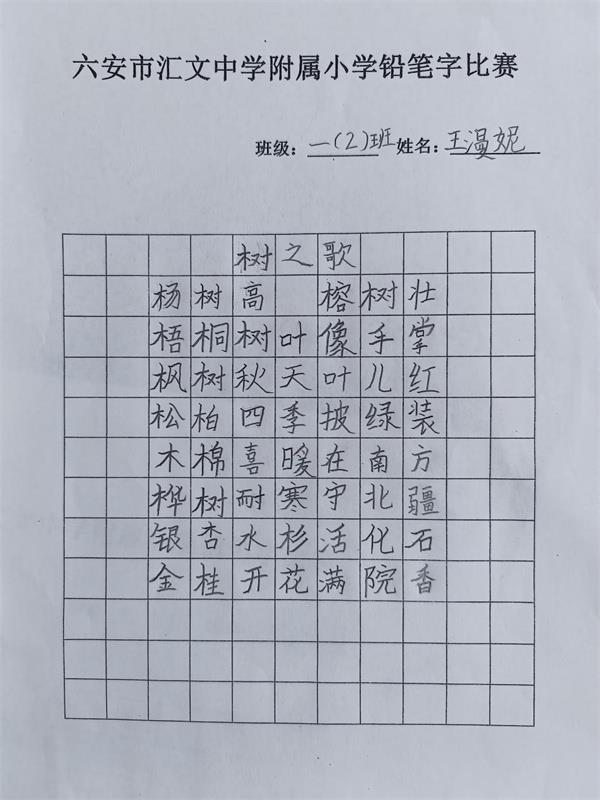 六安市汇文中学附属小学铅笔字比赛
班级：一(2)班 姓名：王温妮
树之歌
杨树高 榕树壮
梧桐树叶像手掌
枫树秋天叶儿红
松柏四季披绿装
木棉喜暖在南方
桦树耐寒守北疆
银杏水杉活化石
金桂开花满院香